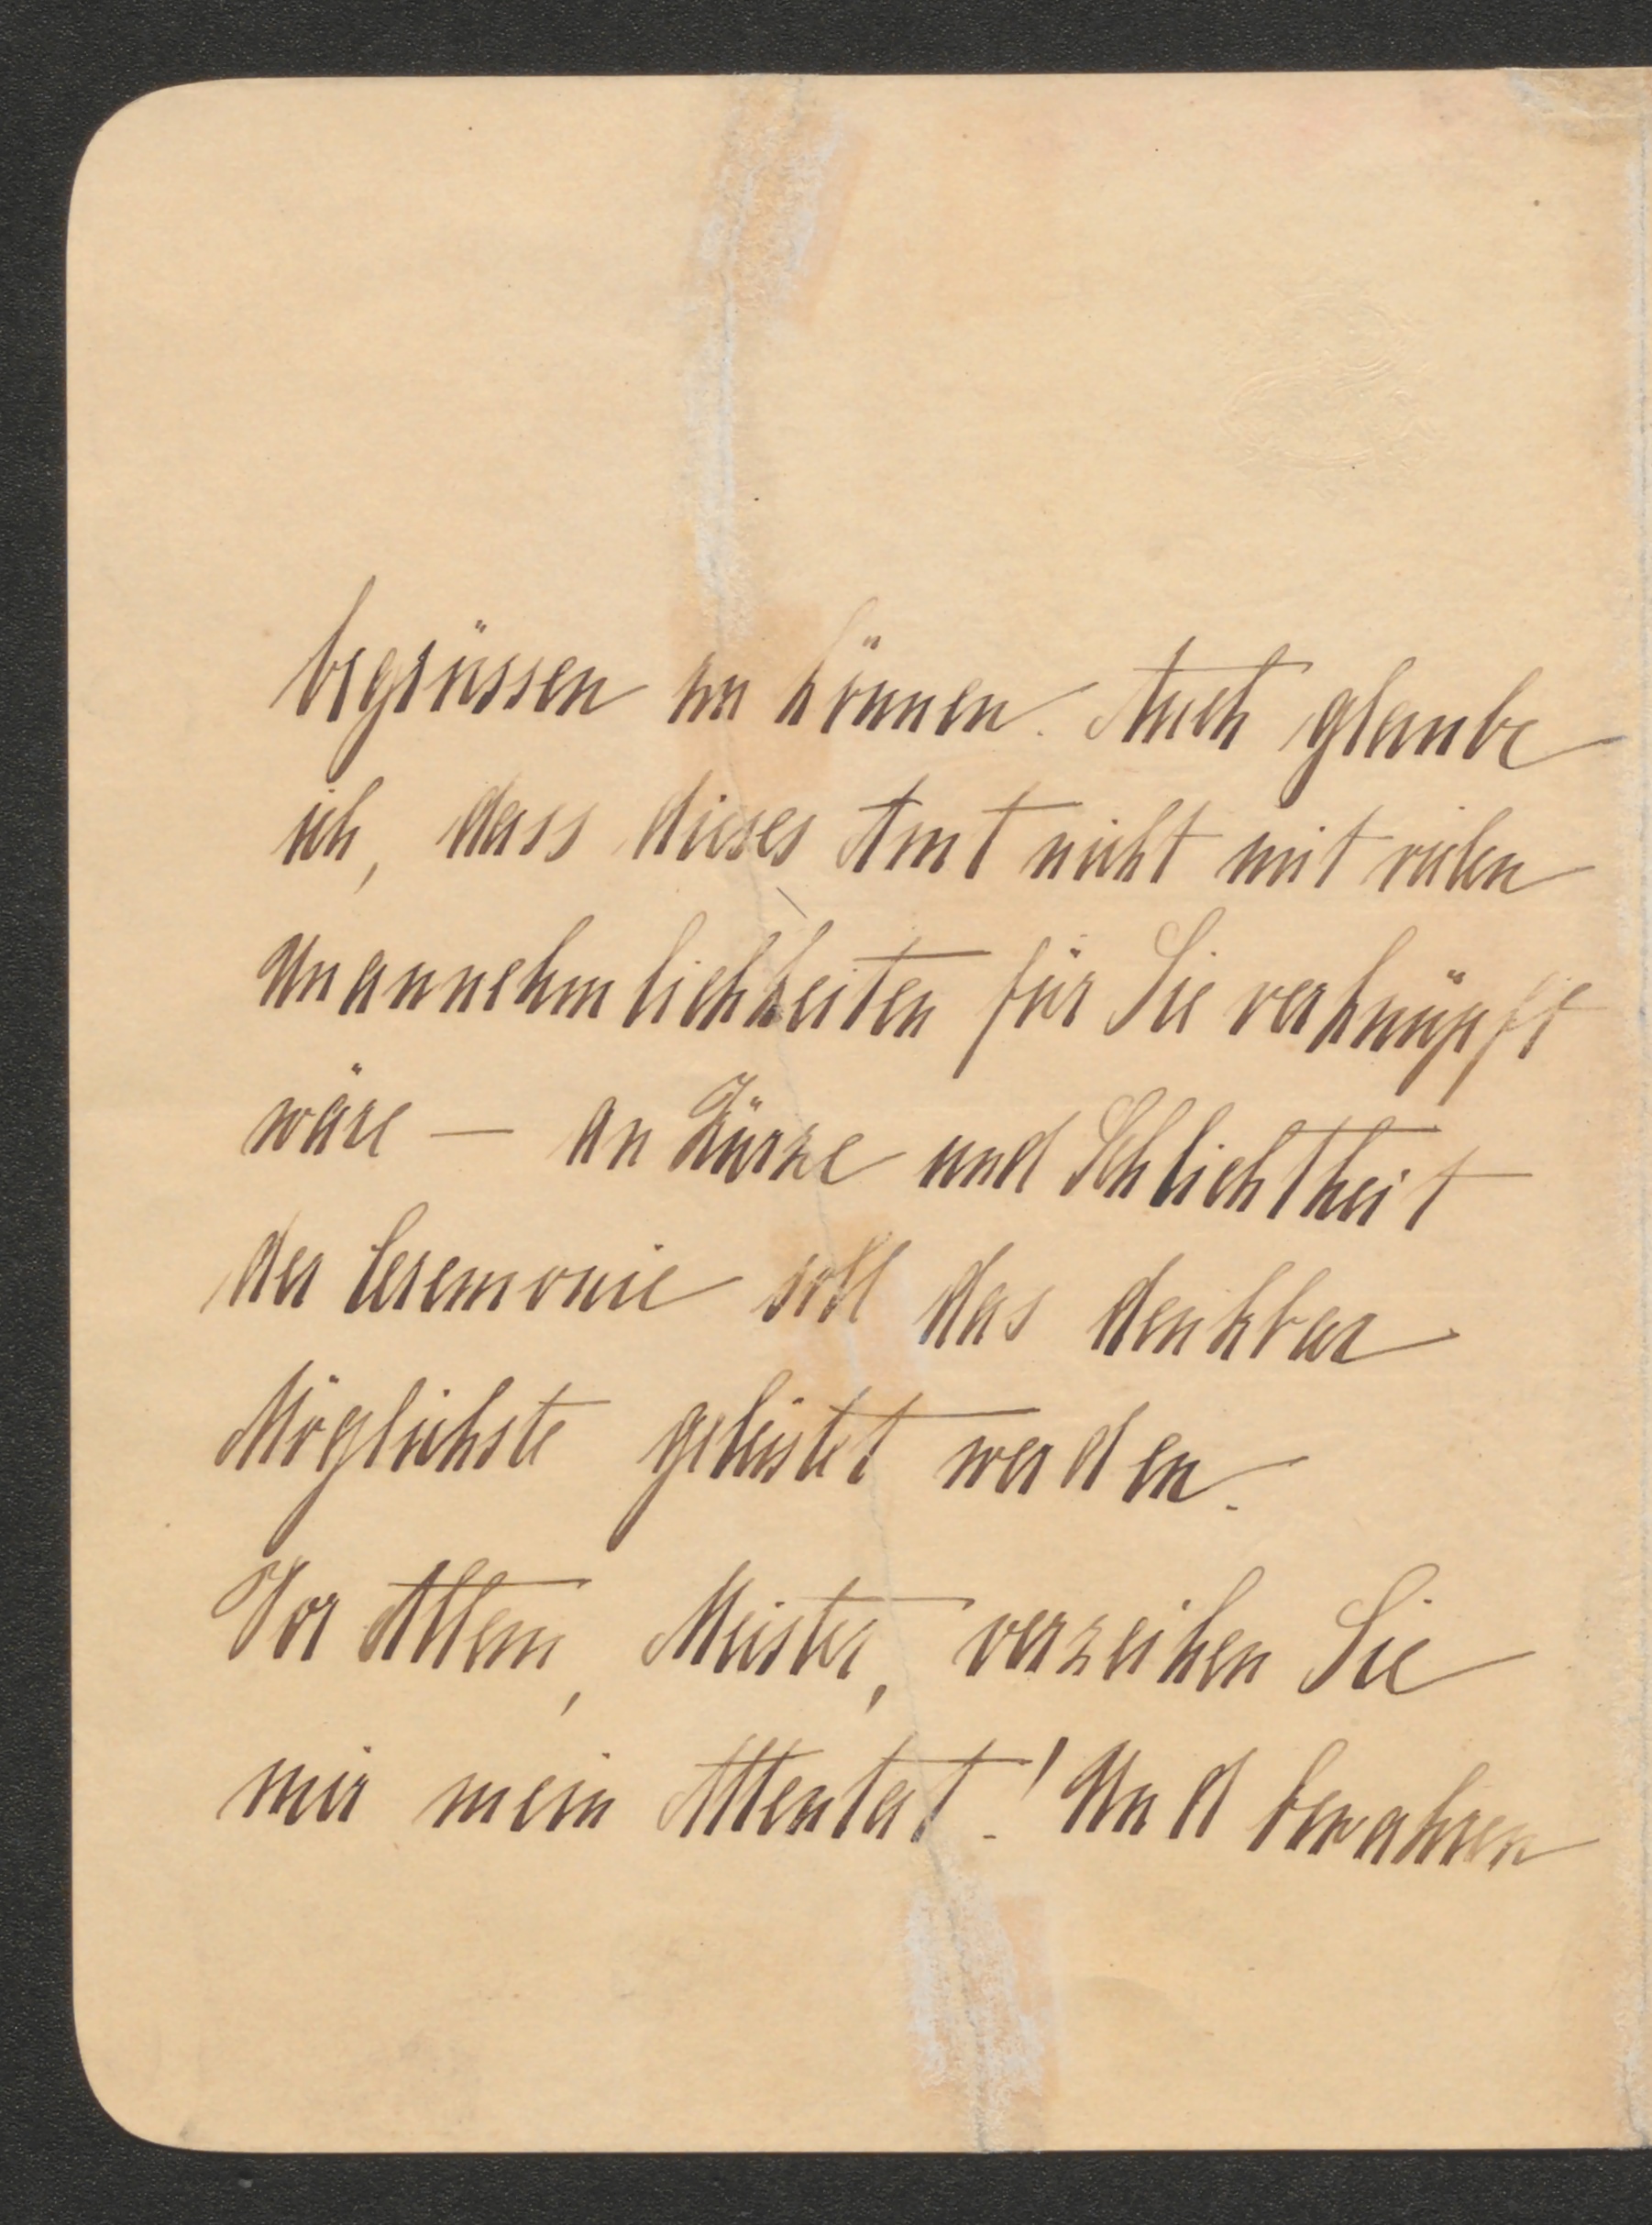 begrüssen zu können. Auch glaube
ich, dass dieses Amt nicht mit vielen
Unannehmlichkeiten für Sie verknüpft
wäre — an Kürze und Schlichtheit
der Ceremonie soll das denkbar
Möglichste geleistet werden.
Vor Allem, Meister, verzeihen Sie
mir mein Attentat! Und bewahren